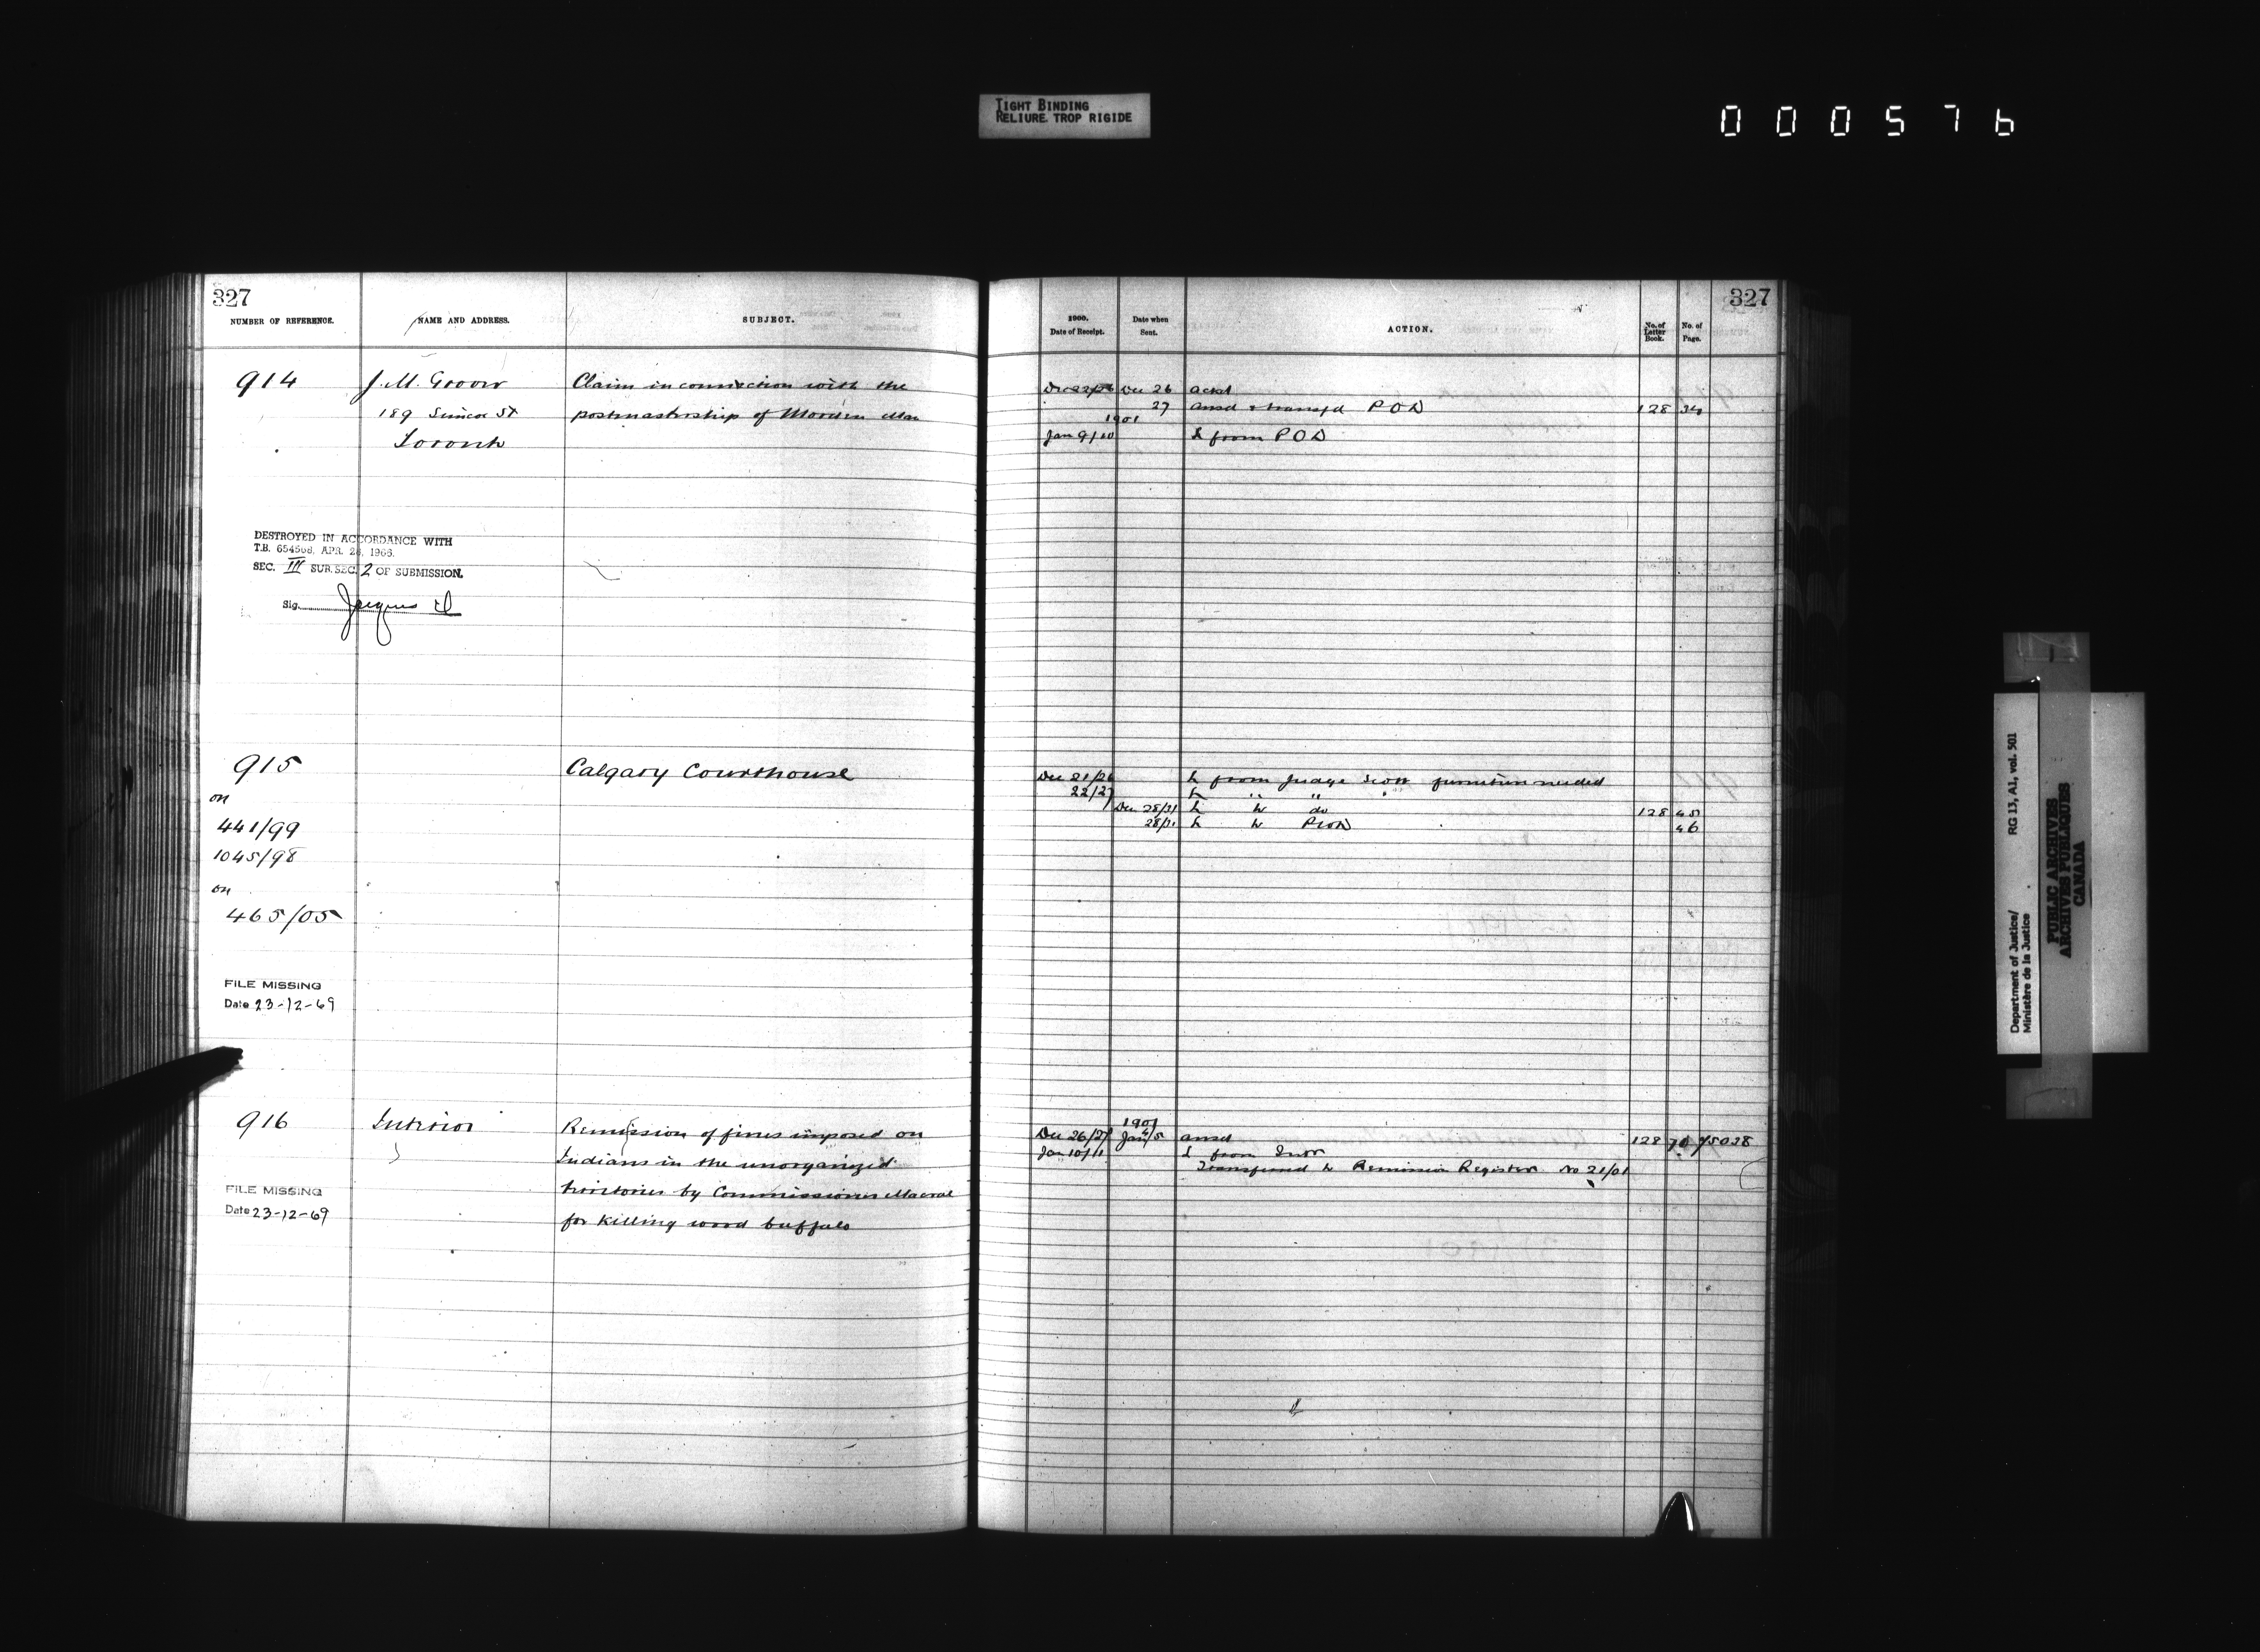 TIGHT BINDING
RELIURE TROP RIGIDE
000576
327
NUMBER OF REFERENCE.
NAME AND ADDRESS.
SUBJECT.
914
J. M. Groover
Claim in connection with the
189 Simcoe St
postmastership of Morden Man
Toronto
DESTROYED IN ACCORDANCE WITH
T.B. 654568, APR. 28, 1966.
SEC. III SUB.SEC. 2 OF SUBMISSION.
Sig.
915
Calgary Courthouse
on
441/99
1045/98
on
465/05
FILE MISSING
Date 23-12-69
916
Interior
Remission of fines imposed on
Indians in the unorganized
territories by Commissioner Macrae
for killing wood buffalo
FILE MISSING
Date 23-12-69
327
1900.
Date of Receipt.
Date when
Sent.
ACTION.
No. of
Letter
Book.
No. of
Page.
Dec 22/26 Dec 26 ackd
27 ansd & transfd P O D 128 34
1901
Jan 9/10 L from P O D
Dec 21/26 L from Judge Scott furniture needed
22/27 L " " "
Dec 28/31 L to do 128 45
28/31 L to PWD 46
1901
Dec 26/27 Jan 4/5 ansd 128 70 75028
Jan 10/11 L from Intr
Transferred to Remission Register No 21/01
Department of Justice/
Ministère de la Justice
RG 13, A1, vol. 501
PUBLIC ARCHIVES
ARCHIVES PUBLIQUES
CANADA